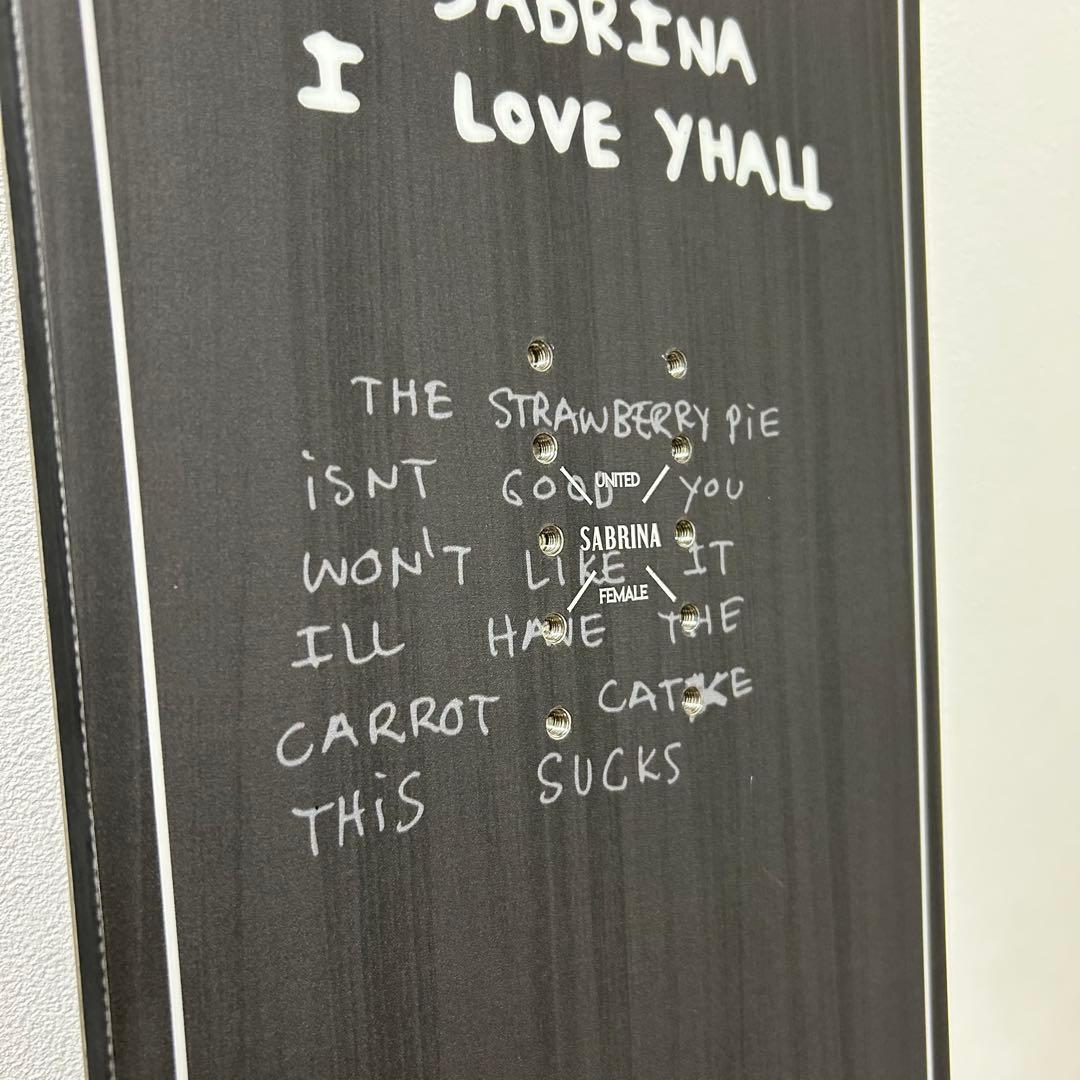 SABRINA
I LOVE YHALL
THE STRAWBERRY PIE
ISNT GOOD YOU
UNITED
SABRINA
WON'T LIKE IT
FEMALE
ILL HAVE THE
CARROT CATKE
THIS SUCKS